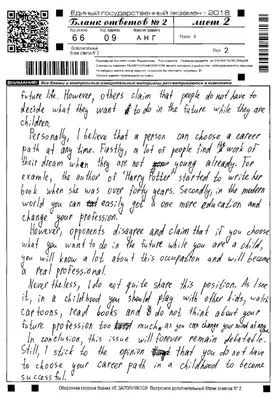 Единый государственный экзамен - 2018
Бланк ответов № 2 лист 2
Код региона Код предмета Название предмета
66 09 АНГ
Резерв 8
Дополнительный бланк ответов № 2
Лист 2
future life. However, others claim that people do not have to
decide what they want to do in the future while they are
children.
Personally, I believe that a person can choose a career
path at any time. Firstly, a lot of people find work of
their dream when they are not young already. For
example, the author of "Harry Potter" started to write her
book when she was over forty years. Secondly, in the modern
world you can easily get one more education and
change your profession.
However, opponents disagree and claim that if you choose
what you want to do in the future while you are a child,
you will know a lot about this occupation and will become
a real professional.
Nevertheless, I do not quite share this position. As I see
it, in a childhood you should play with other kids, watch
cartoons, read books and do not think about your
future profession too much, as you can change your mind at any time.
In conclusion, this issue will forever remain debatable.
Still, I stick to the opinion that you do not have
to choose your career path in a childhood to become
successful.
Оборотная сторона бланка НЕ ЗАПОЛНЯЕТСЯ. Попросите дополнительный бланк ответов № 2